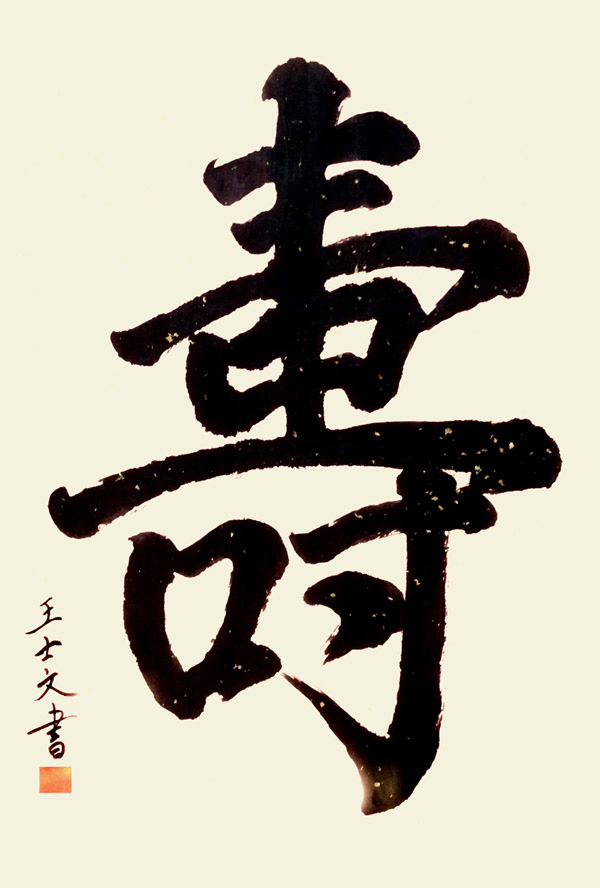 壽
王士文書